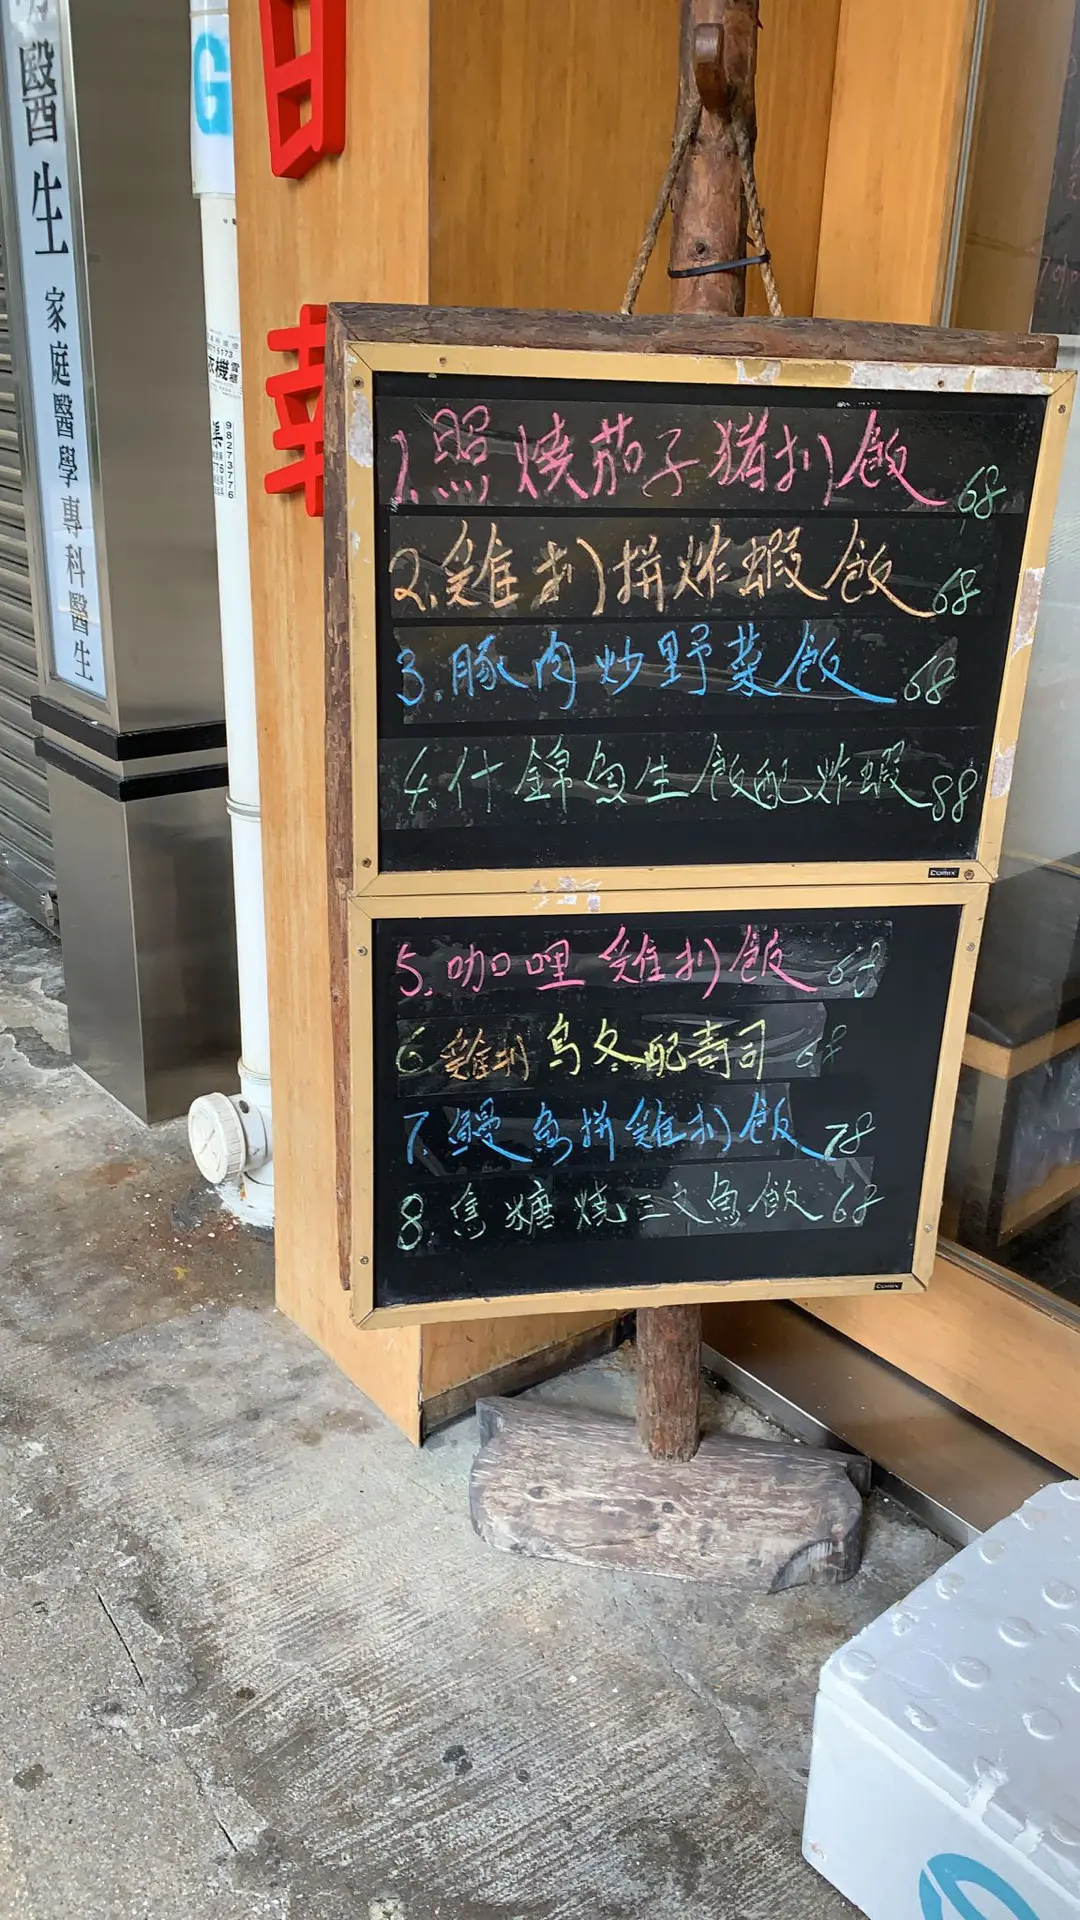 醫生
家庭醫學專科醫生
G
日
幸
98273776
1.照燒茄子豬扒飯 68
2.雞扒拼炸蝦飯 68
3.豚肉炒野菜飯 68
4.什錦魚生飯配炸蝦 88
COMIX
5.咖哩雞扒飯 68
6 雞扒烏冬配壽司 68
7.鰻魚拼雞扒飯 78
8.焦糖燒三文魚飯 68
COMIX